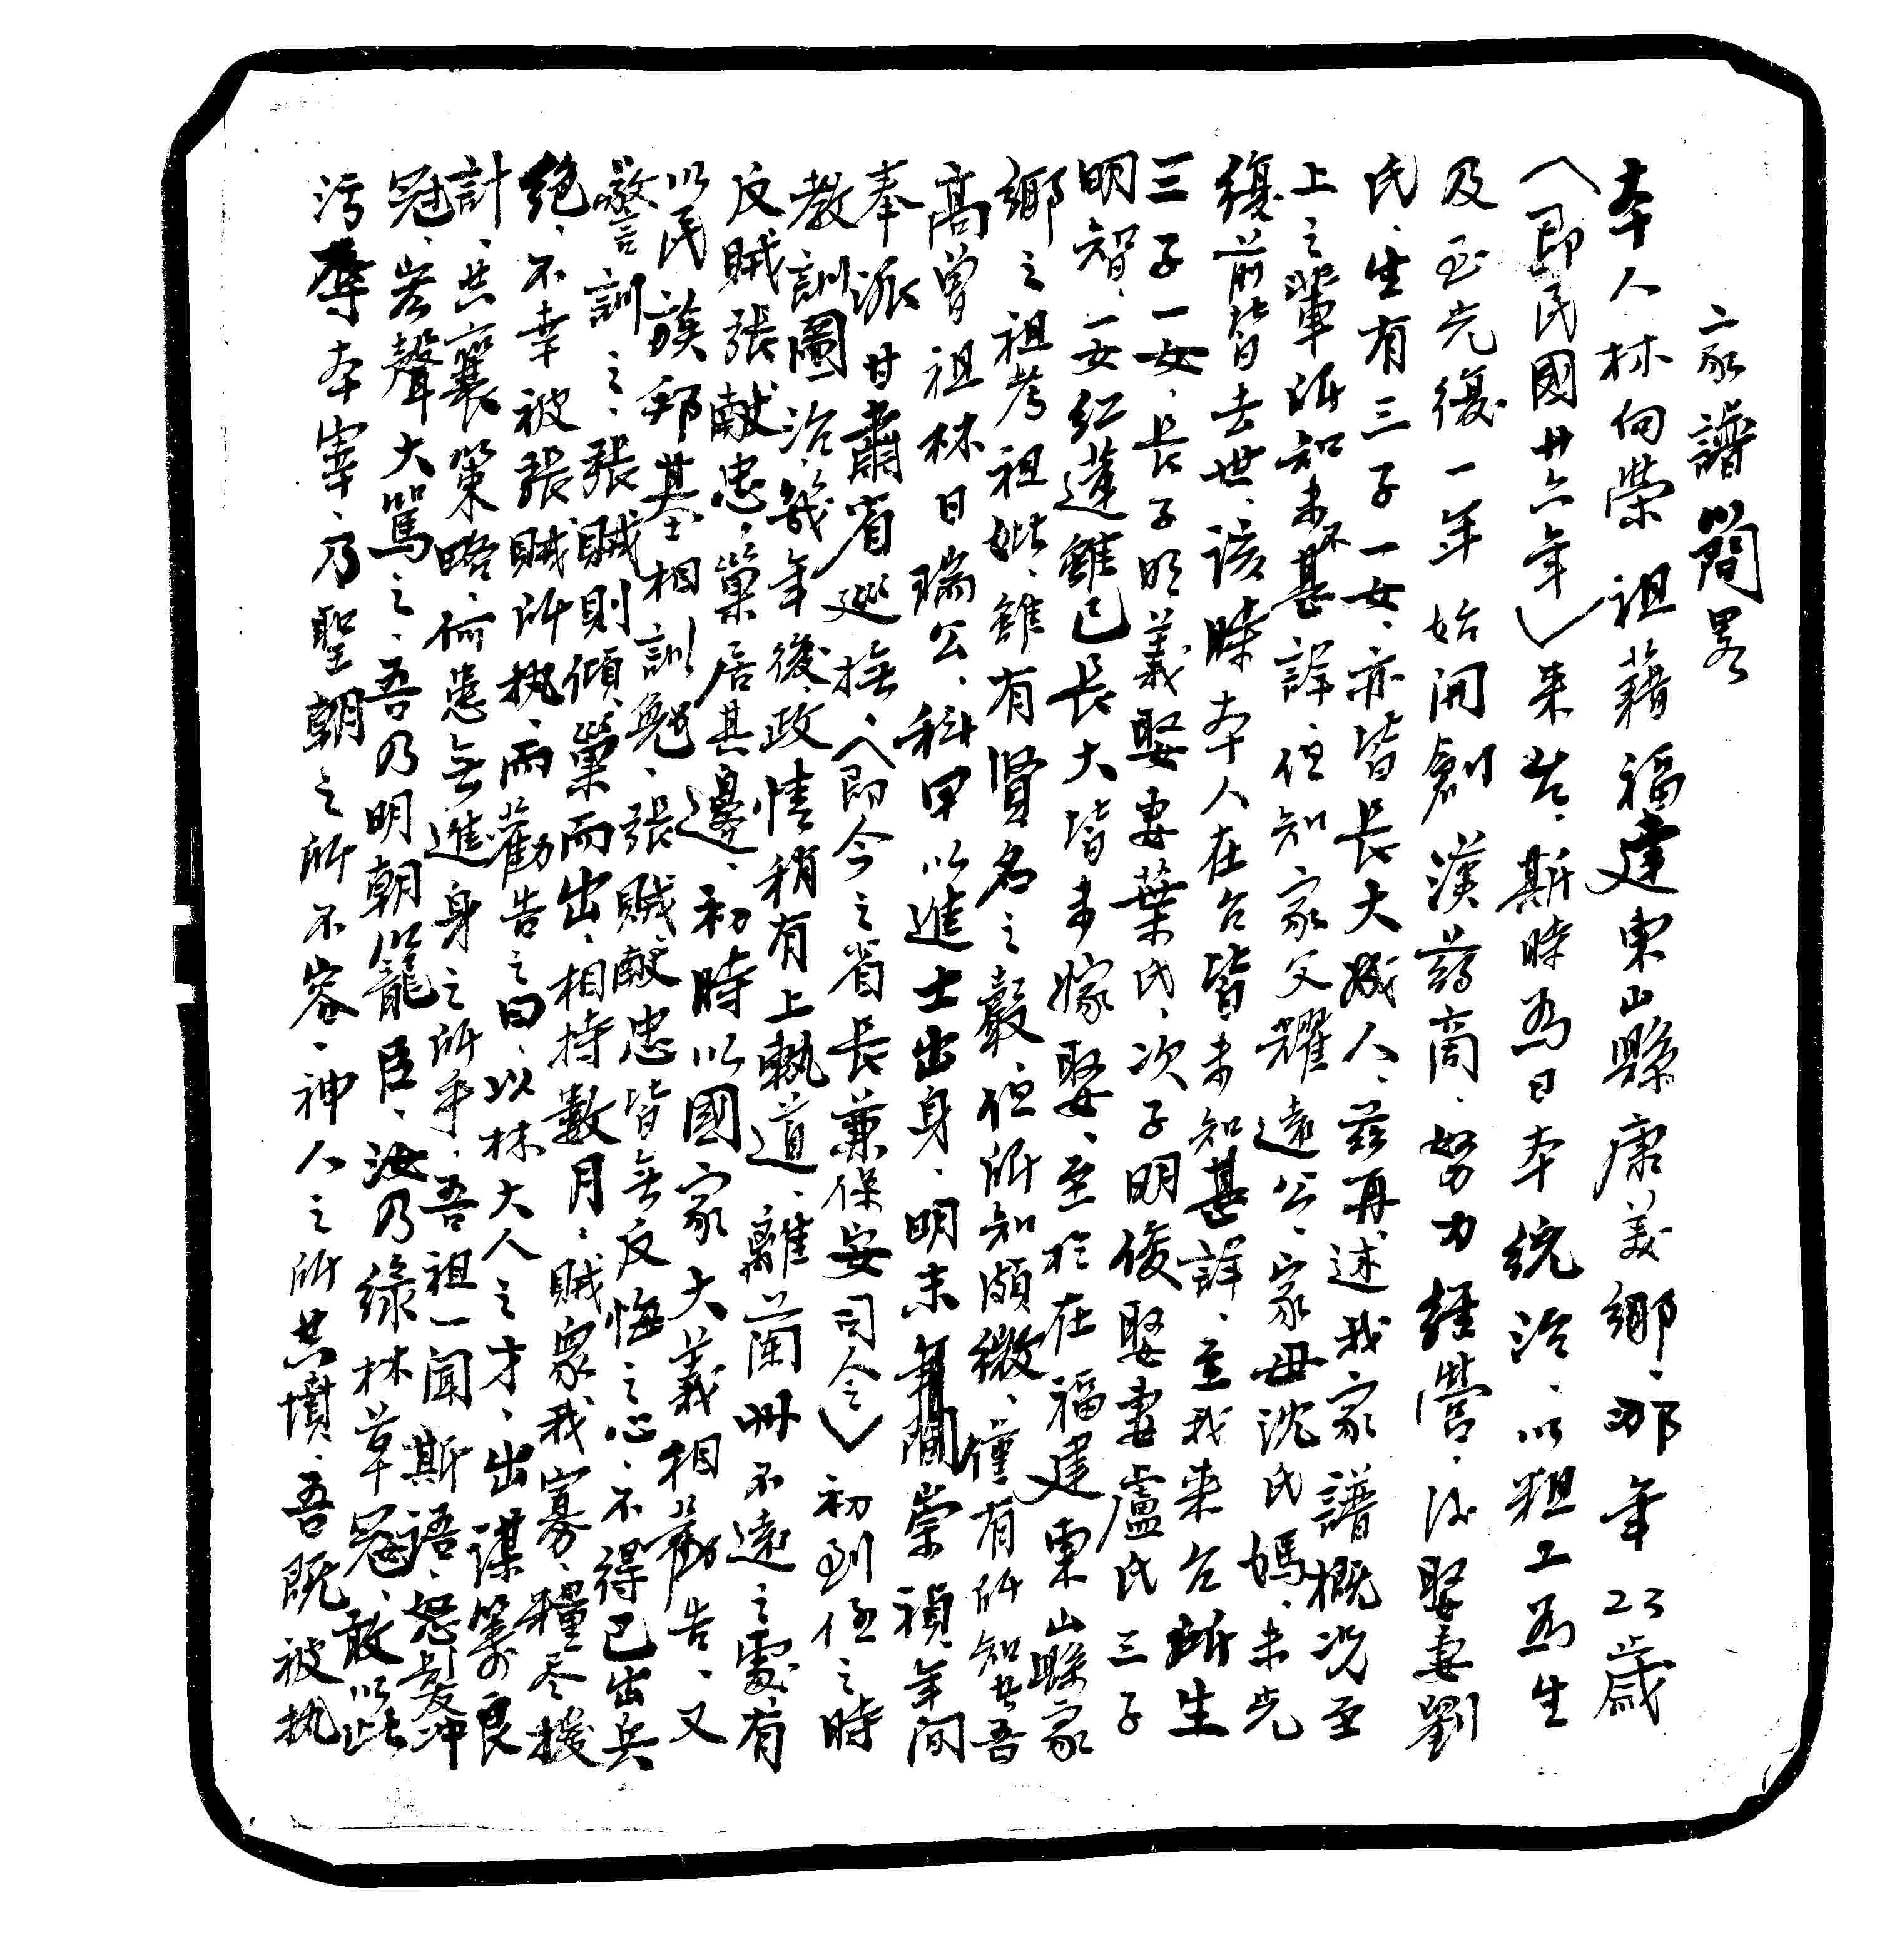 家譜簡畧
本人林向榮祖藉福建東山縣康美鄉、那年23歲
（即民國廿六年）来台、斯時為日本統治、以粗工為生
及至光復一年始開創漢葯商、努力經營、後娶妻劉
氏、生有三子一女、亦皆長大成人、茲再述我家譜概况至
上之輩訴知未不甚詳、但知家父耀遠公、家母沈氏媽、未光
復前皆去世、該時本人在台皆未知甚詳、至我来台所生
三子一女、長子明義娶妻葉氏、次子明俊娶妻盧氏三子
明智、一女紅蓮雖已長大皆未嫁娶、至於在福建東山縣家
鄉之祖考祖妣、雖有賢名之嚴、但所知頗微、僅有所知者吾
高曾祖林日瑞公、科甲以進士出身、明末年間崇禎年間
奉派甘肅省巡撫、（即今之省長兼保安司令）初到任之時
教訓圖治、幾年後、政情稍有上軌道、離蘭州不遠之處有
反賊張献忠、巢居其邊、初時以國家大義相勸告、又
以民族邦基相訓勉、張賊献忠皆無反悔之心、不得已出兵
警訓之、張賊則傾巢而出、相持數月、賊衆我寡、糧尽援
絶、不幸被張賊所执、而勸告之曰、以林大人之才、出謀籌良
計、共襄策略、何患無進身之所乎、吾祖一聞斯語、怒髮冲
冠、岩聲大駡之、吾乃明朝籠臣、汝乃綠林草寇、敢以此
污辱本宰、乃聖朝之所不容、神人之所共憤、吾既被执